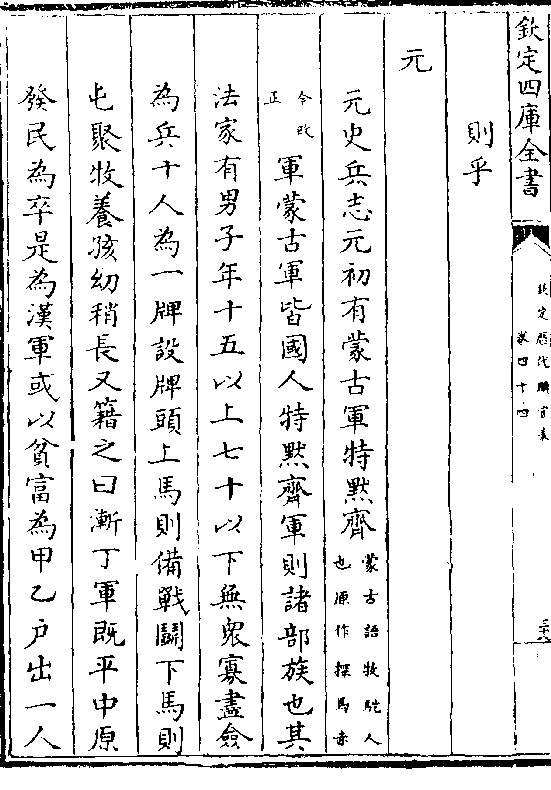 欽定四庫全書
欽定歷代職官表
卷四十四
三十八
則乎
元
元史兵志元初有蒙古軍特黙齊
蒙古語牧駝人
也原作探馬赤
今改
正
軍蒙古軍皆國人特黙齊軍則諸部族也其
法家有男子年十五以上七十以下無衆寡盡僉
為兵十人為一牌設牌頭上馬則備戰鬭下馬則
屯聚牧養孩幼稍長又籍之曰漸丁軍既平中原
發民為卒是為漢軍或以貧富為甲乙户出一人